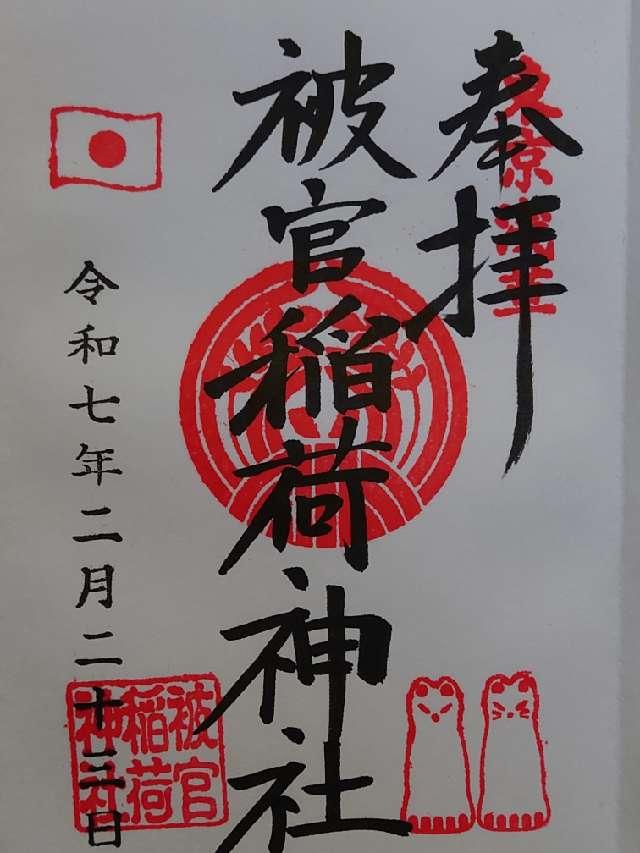 奉拝
東京浅草
被官稲荷神社
令和七年二月二十三日
被官
稲荷
神社